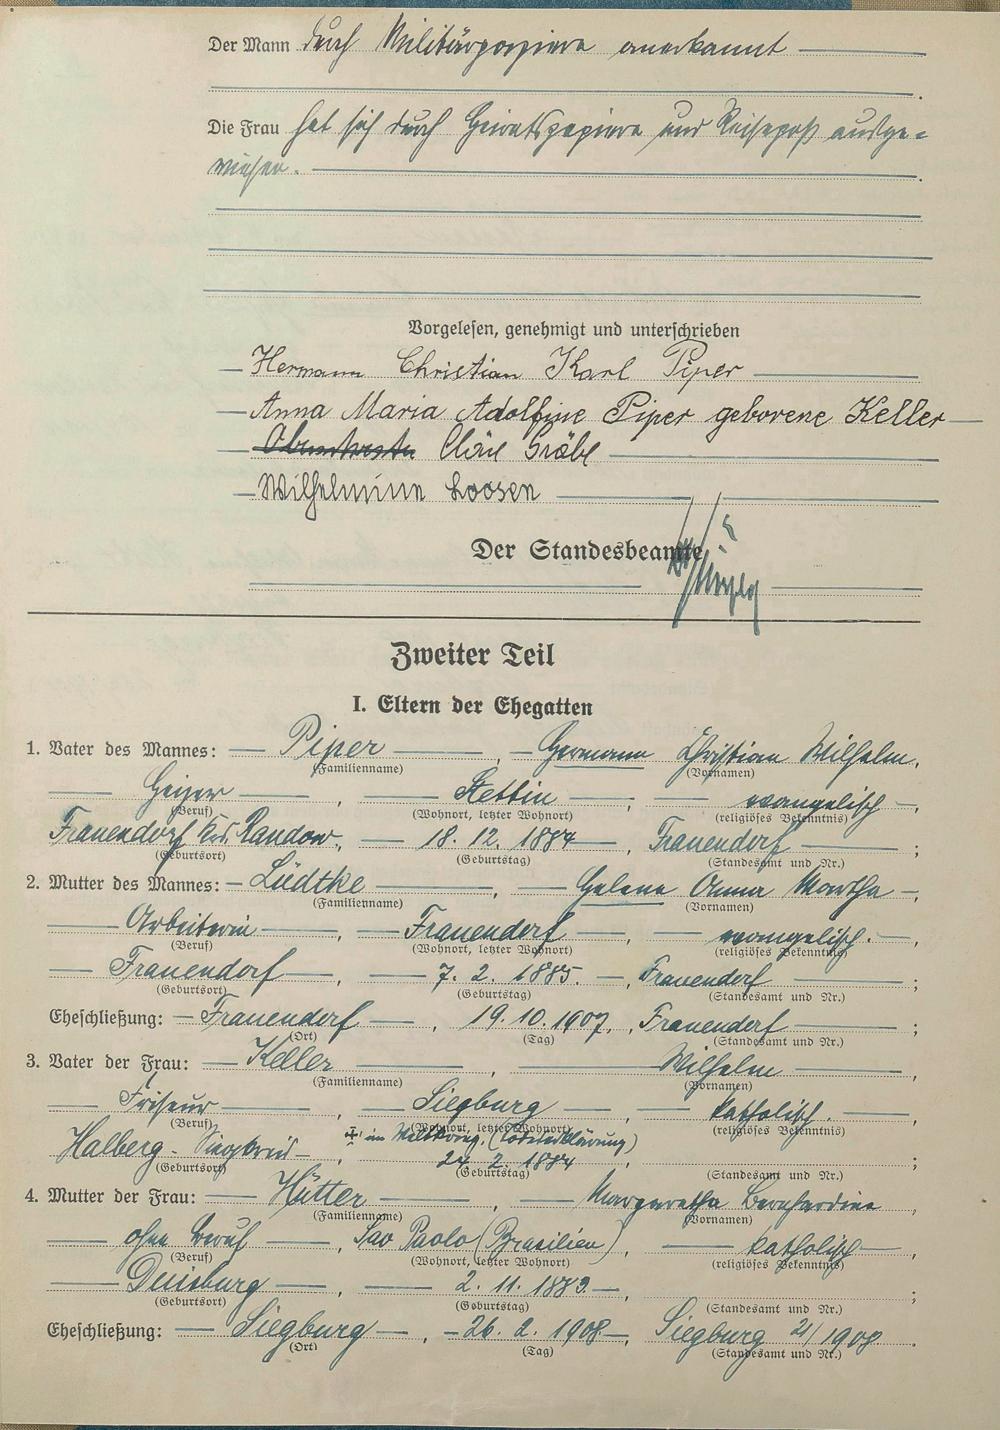 Der Mann durch Militärpapiere anerkannt
Die Frau hat sich durch Heiratspapiere und Reisepaß ausge=
wiesen.
Vorgelesen, genehmigt und unterschrieben
Hermann Christian Karl Piper
Anna Maria Adolfine Piper geborene Keller
Cläre Gräbe
Wilhelmine Loosen
Der Standesbeamte
Zweiter Teil
I. Eltern der Ehegatten
1. Vater des Mannes: Piper, Hermann Christian Wilhelm,
(Familienname) (Vornamen)
Heizer, Stettin, evangelisch,
(Beruf) (Wohnort, letzter Wohnort) (religiöses Bekenntnis)
Frauendorf Krs. Randow, 18. 12. 1884, Frauendorf;
(Geburtsort) (Geburtstag) (Standesamt und Nr.)
2. Mutter des Mannes: Lüdtke, Helene Anna Martha,
(Familienname) (Vornamen)
Arbeiterin, Frauendorf, evangelisch.,
(Beruf) (Wohnort, letzter Wohnort) (religiöses Bekenntnis)
Frauendorf, 7. 2. 1885., Frauendorf;
(Geburtsort) (Geburtstag) (Standesamt und Nr.)
Eheschließung: Frauendorf, 19. 10. 1907., Frauendorf;
(Ort) (Tag) (Standesamt und Nr.)
3. Vater der Frau: Keller, Wilhelm,
(Familienname) (Vornamen)
Friseur, Siegburg, katholisch.,
(Beruf) (Wohnort, letzter Wohnort) (religiöses Bekenntnis)
im Weltkrieg. (Todeserklärung)
Halberg - Siegkreis, 24. 2. 1884;
(Geburtsort) (Geburtstag) (Standesamt und Nr.)
4. Mutter der Frau: Hütter, Margaretha Bernhardine,
(Familienname) (Vornamen)
ohne Beruf, Sao Paolo (Brasilien), katholisch,
(Beruf) (Wohnort, letzter Wohnort) (religiöses Bekenntnis)
Duisburg, 2. 11. 1883.;
(Geburtsort) (Geburtstag) (Standesamt und Nr.)
Eheschließung: Siegburg, 26. 2. 1908, Siegburg 21/1908.
(Ort) (Tag) (Standesamt und Nr.)